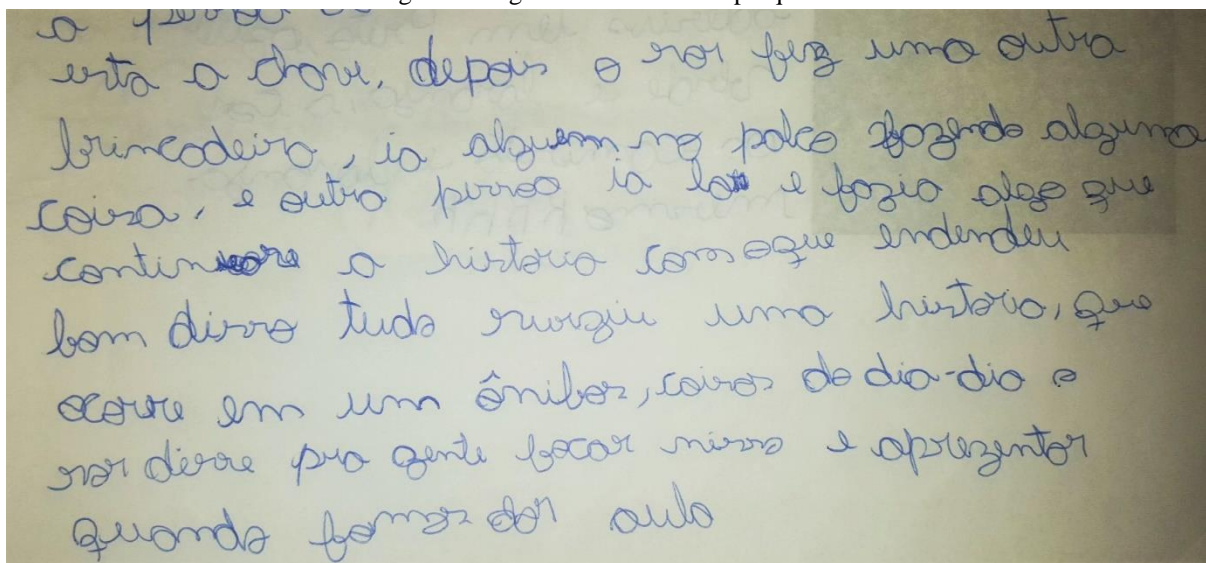 a
esta a chave, depois o sor fez uma outra
brincadeira, ia alguem no palco fazendo alguma
coisa, e outra pessoa ia la e fazia algo que
continuasse a história com oque endendeu
bom disso tudo surgiu uma história, que
ocorre em um ônibos, coisas do dia-dia o
sor disse pra gente focar nisso e aprezentar
quando fomos dar aula